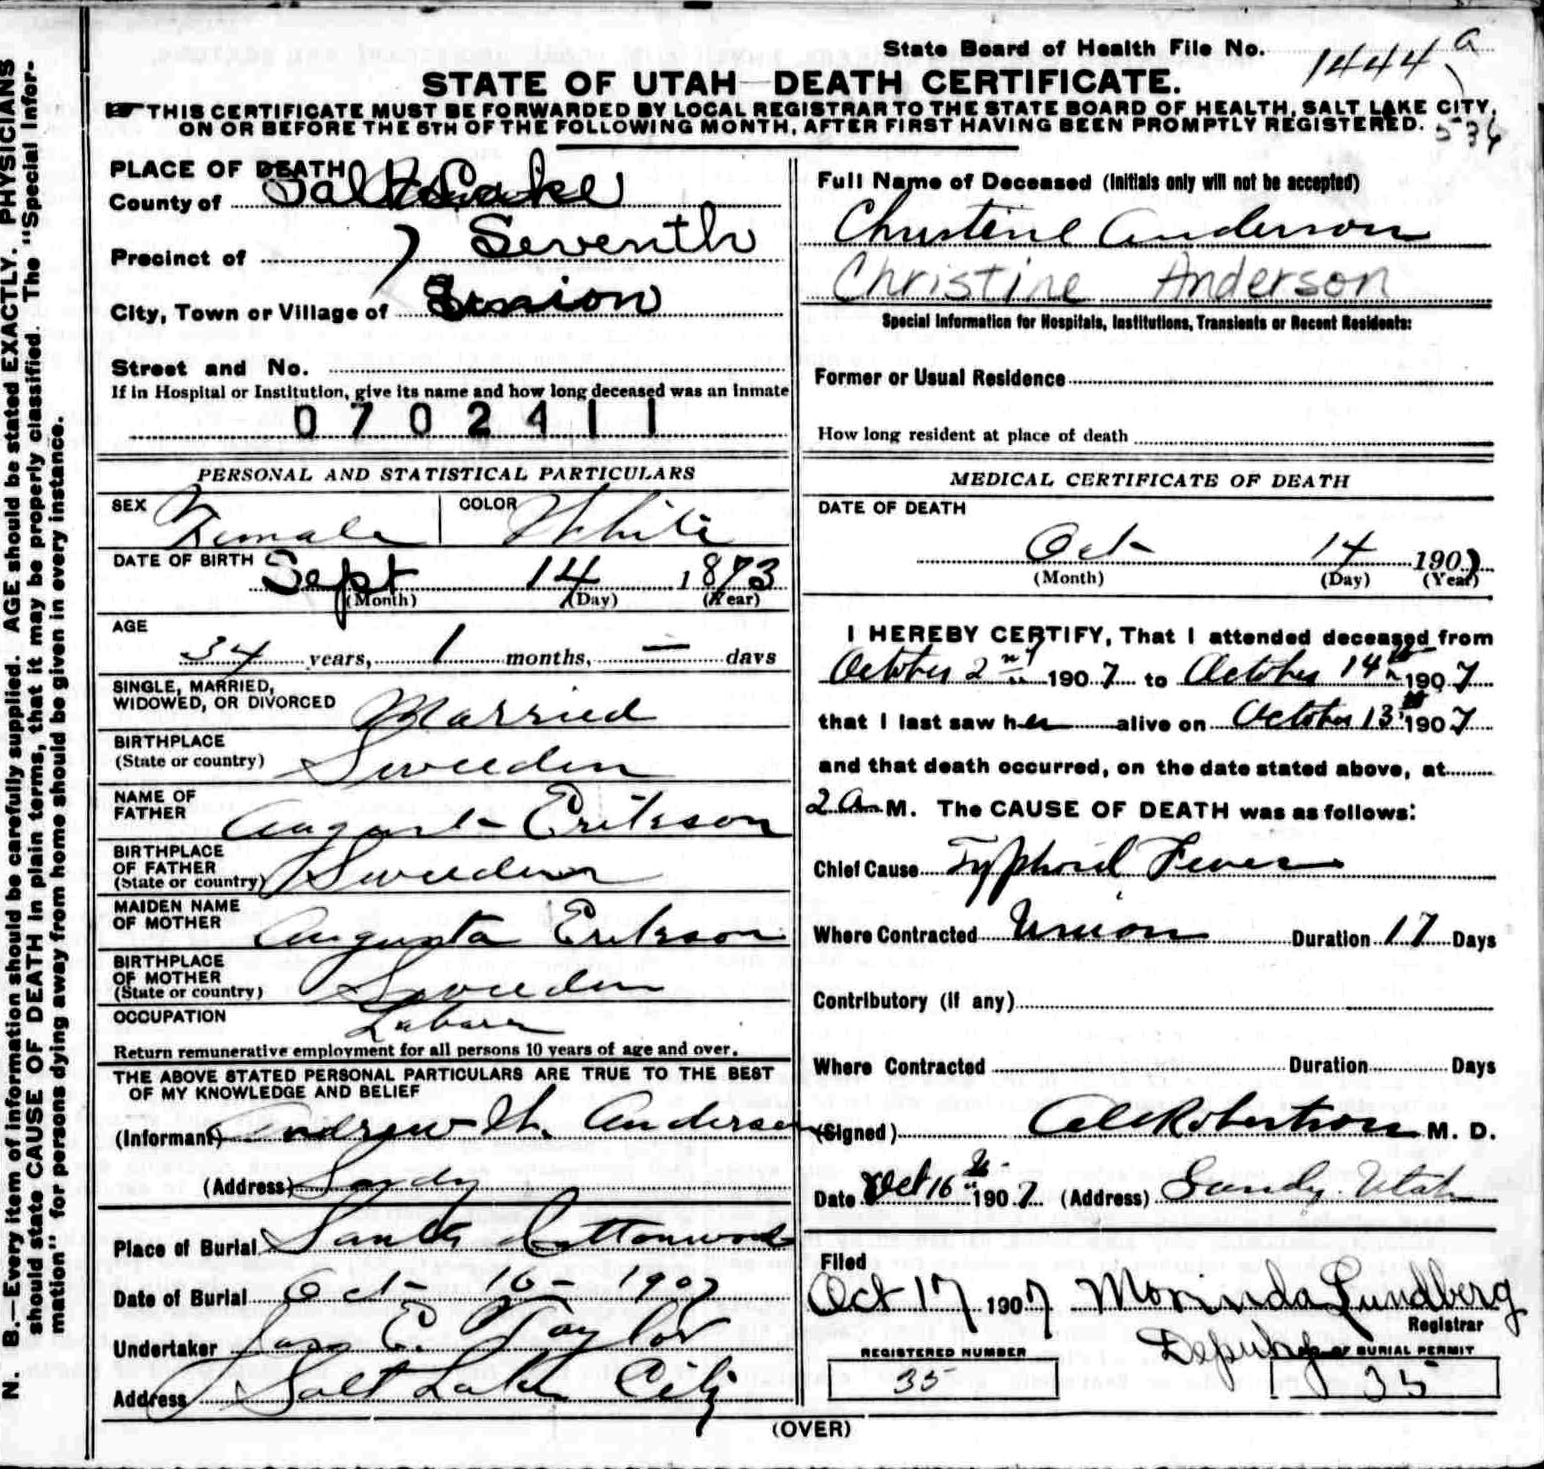 State Board of Health File No. 1444 a
STATE OF UTAH—DEATH CERTIFICATE.
THIS CERTIFICATE MUST BE FORWARDED BY LOCAL REGISTRAR TO THE STATE BOARD OF HEALTH, SALT LAKE CITY,
ON OR BEFORE THE 5TH OF THE FOLLOWING MONTH, AFTER FIRST HAVING BEEN PROMPTLY REGISTERED.
536
PLACE OF DEATH
County of Salt Lake
Precinct of Seventh
City, Town or Village of Union
Street and No.
If in Hospital or Institution, give its name and how long deceased was an inmate
0702411
Full Name of Deceased (Initials only will not be accepted)
Christine Anderson
Christine Anderson
Special Information for Hospitals, Institutions, Transients or Recent Residents:
Former or Usual Residence
How long resident at place of death
PERSONAL AND STATISTICAL PARTICULARS
SEX Female COLOR White
DATE OF BIRTH Sept 14 1873
(Month) (Day) (Year)
AGE
34 years, 1 months, — days
SINGLE, MARRIED,
WIDOWED, OR DIVORCED Married
BIRTHPLACE
(State or country) Sweeden
NAME OF
FATHER August Erikson
BIRTHPLACE
OF FATHER
(State or country) Sweeden
MAIDEN NAME
OF MOTHER Augusta Erikson
BIRTHPLACE
OF MOTHER
(State or country) Sweeden
OCCUPATION
Return remunerative employment for all persons 10 years of age and over.
THE ABOVE STATED PERSONAL PARTICULARS ARE TRUE TO THE BEST
OF MY KNOWLEDGE AND BELIEF
(Informant) Andrew H. Anderson
(Address) Sandy
Place of Burial South Cottonwood
Date of Burial Oct - 16 - 1907
Undertaker Jas E. Taylor
Address Salt Lake City
MEDICAL CERTIFICATE OF DEATH
DATE OF DEATH
Oct 14 1907
(Month) (Day) (Year)
I HEREBY CERTIFY, That I attended deceased from
October 2nd 1907 to October 14th 1907
that I last saw her alive on October 13th 1907
and that death occurred, on the date stated above, at
2 a M. The CAUSE OF DEATH was as follows:
Chief Cause Typhoid Fever
Where Contracted Union Duration 17 Days
Contributory (if any)
Where Contracted Duration Days
(Signed) Robertson M. D.
Date Oct 16th 1907 (Address) Sandy Utah
Filed
Oct 17 1907 Morinda Lundberg
Registrar
Deputy
REGISTERED NUMBER
35
OF BURIAL PERMIT
35
(OVER)
N. B.—Every item of information should be carefully supplied. AGE should be stated EXACTLY. PHYSICIANS
should state CAUSE OF DEATH in plain terms, that it may be properly classified. The "Special Infor-
mation" for persons dying away from home should be given in every instance.